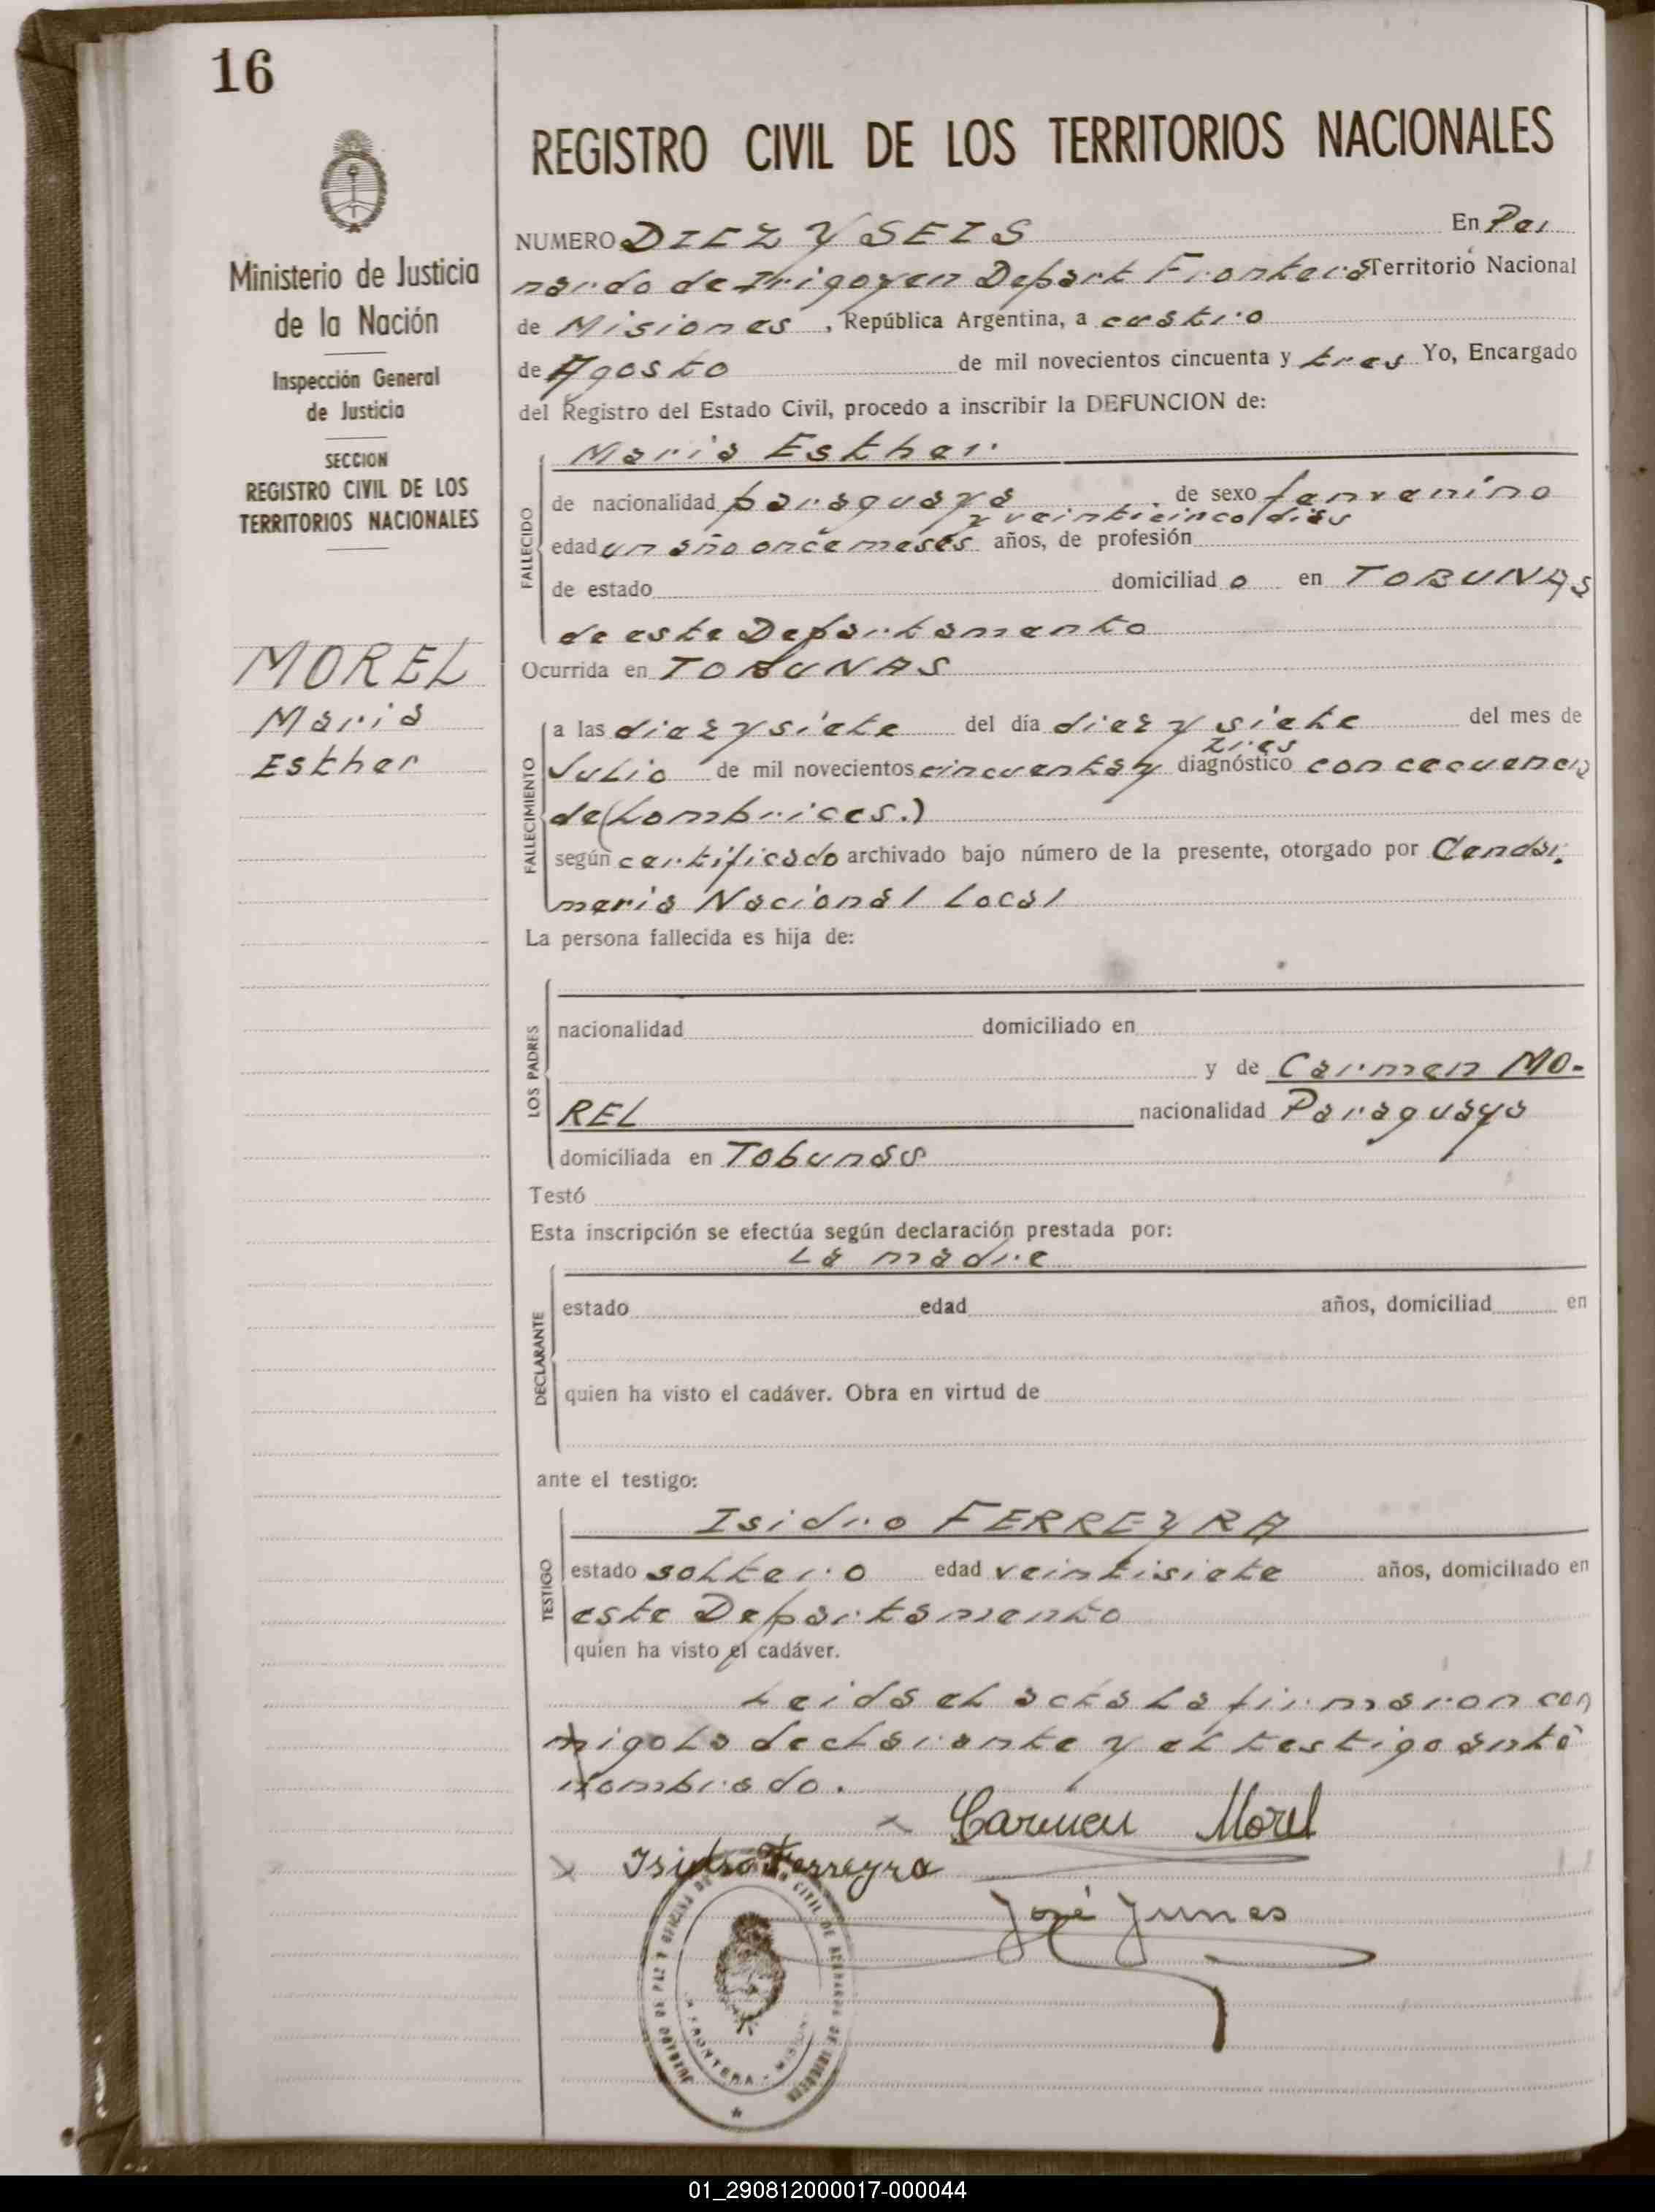 16
REGISTRO CIVIL DE LOS TERRITORIOS NACIONALES
Ministerio de Justicia
de la Nación
Inspección General
de Justicia
SECCION
REGISTRO CIVIL DE LOS
TERRITORIOS NACIONALES
MOREL
Maria
Esther
NUMERO DIEZ Y SEIS En Per
nardo de Irigoyen Depart Frontera Territorio Nacional
de Misiones, República Argentina, a cuatro
de Agosto de mil novecientos cincuenta y tres Yo, Encargado
del Registro del Estado Civil, procedo a inscribir la DEFUNCION de:
Maria Esther
FALLECIDO
de nacionalidad paraguaya de sexo femenino
y veinticinco dias
edad un año once meses años, de profesión
de estado domiciliad o en TOBUNAS
de este Departamento
Ocurrida en TOBUNAS
FALLECIMIENTO
a las diez y siete del día diez y siete del mes de
tres
Julio de mil novecientos cincuenta y diagnóstico con cecuencia
de (Lombrices.)
según certificado archivado bajo número de la presente, otorgado por Gendar
meria Nacional Local
La persona fallecida es hija de:
LOS PADRES
nacionalidad domiciliado en
y de Carmen MO-
REL nacionalidad Paraguaya
domiciliada en Tobunas
Testó
Esta inscripción se efectúa según declaración prestada por:
La madre
DECLARANTE
estado edad años, domiciliad en
quien ha visto el cadáver. Obra en virtud de
ante el testigo:
Isidro FERREYRA
TESTIGO
estado soltero edad veintisiete años, domiciliado en
este Departamento
quien ha visto el cadáver.
Leida el acta la firmaron con
migo la declarante y el testigo ante
nombrado.
Carmen Morel
Isidro Ferreyra
José Junes
JUZGADO DE PAZ Y OFICINA DE CIVIL DE BERNARDO DE IRIGOYEN
FRONTERA - MISIONES
01_290812000017-000044